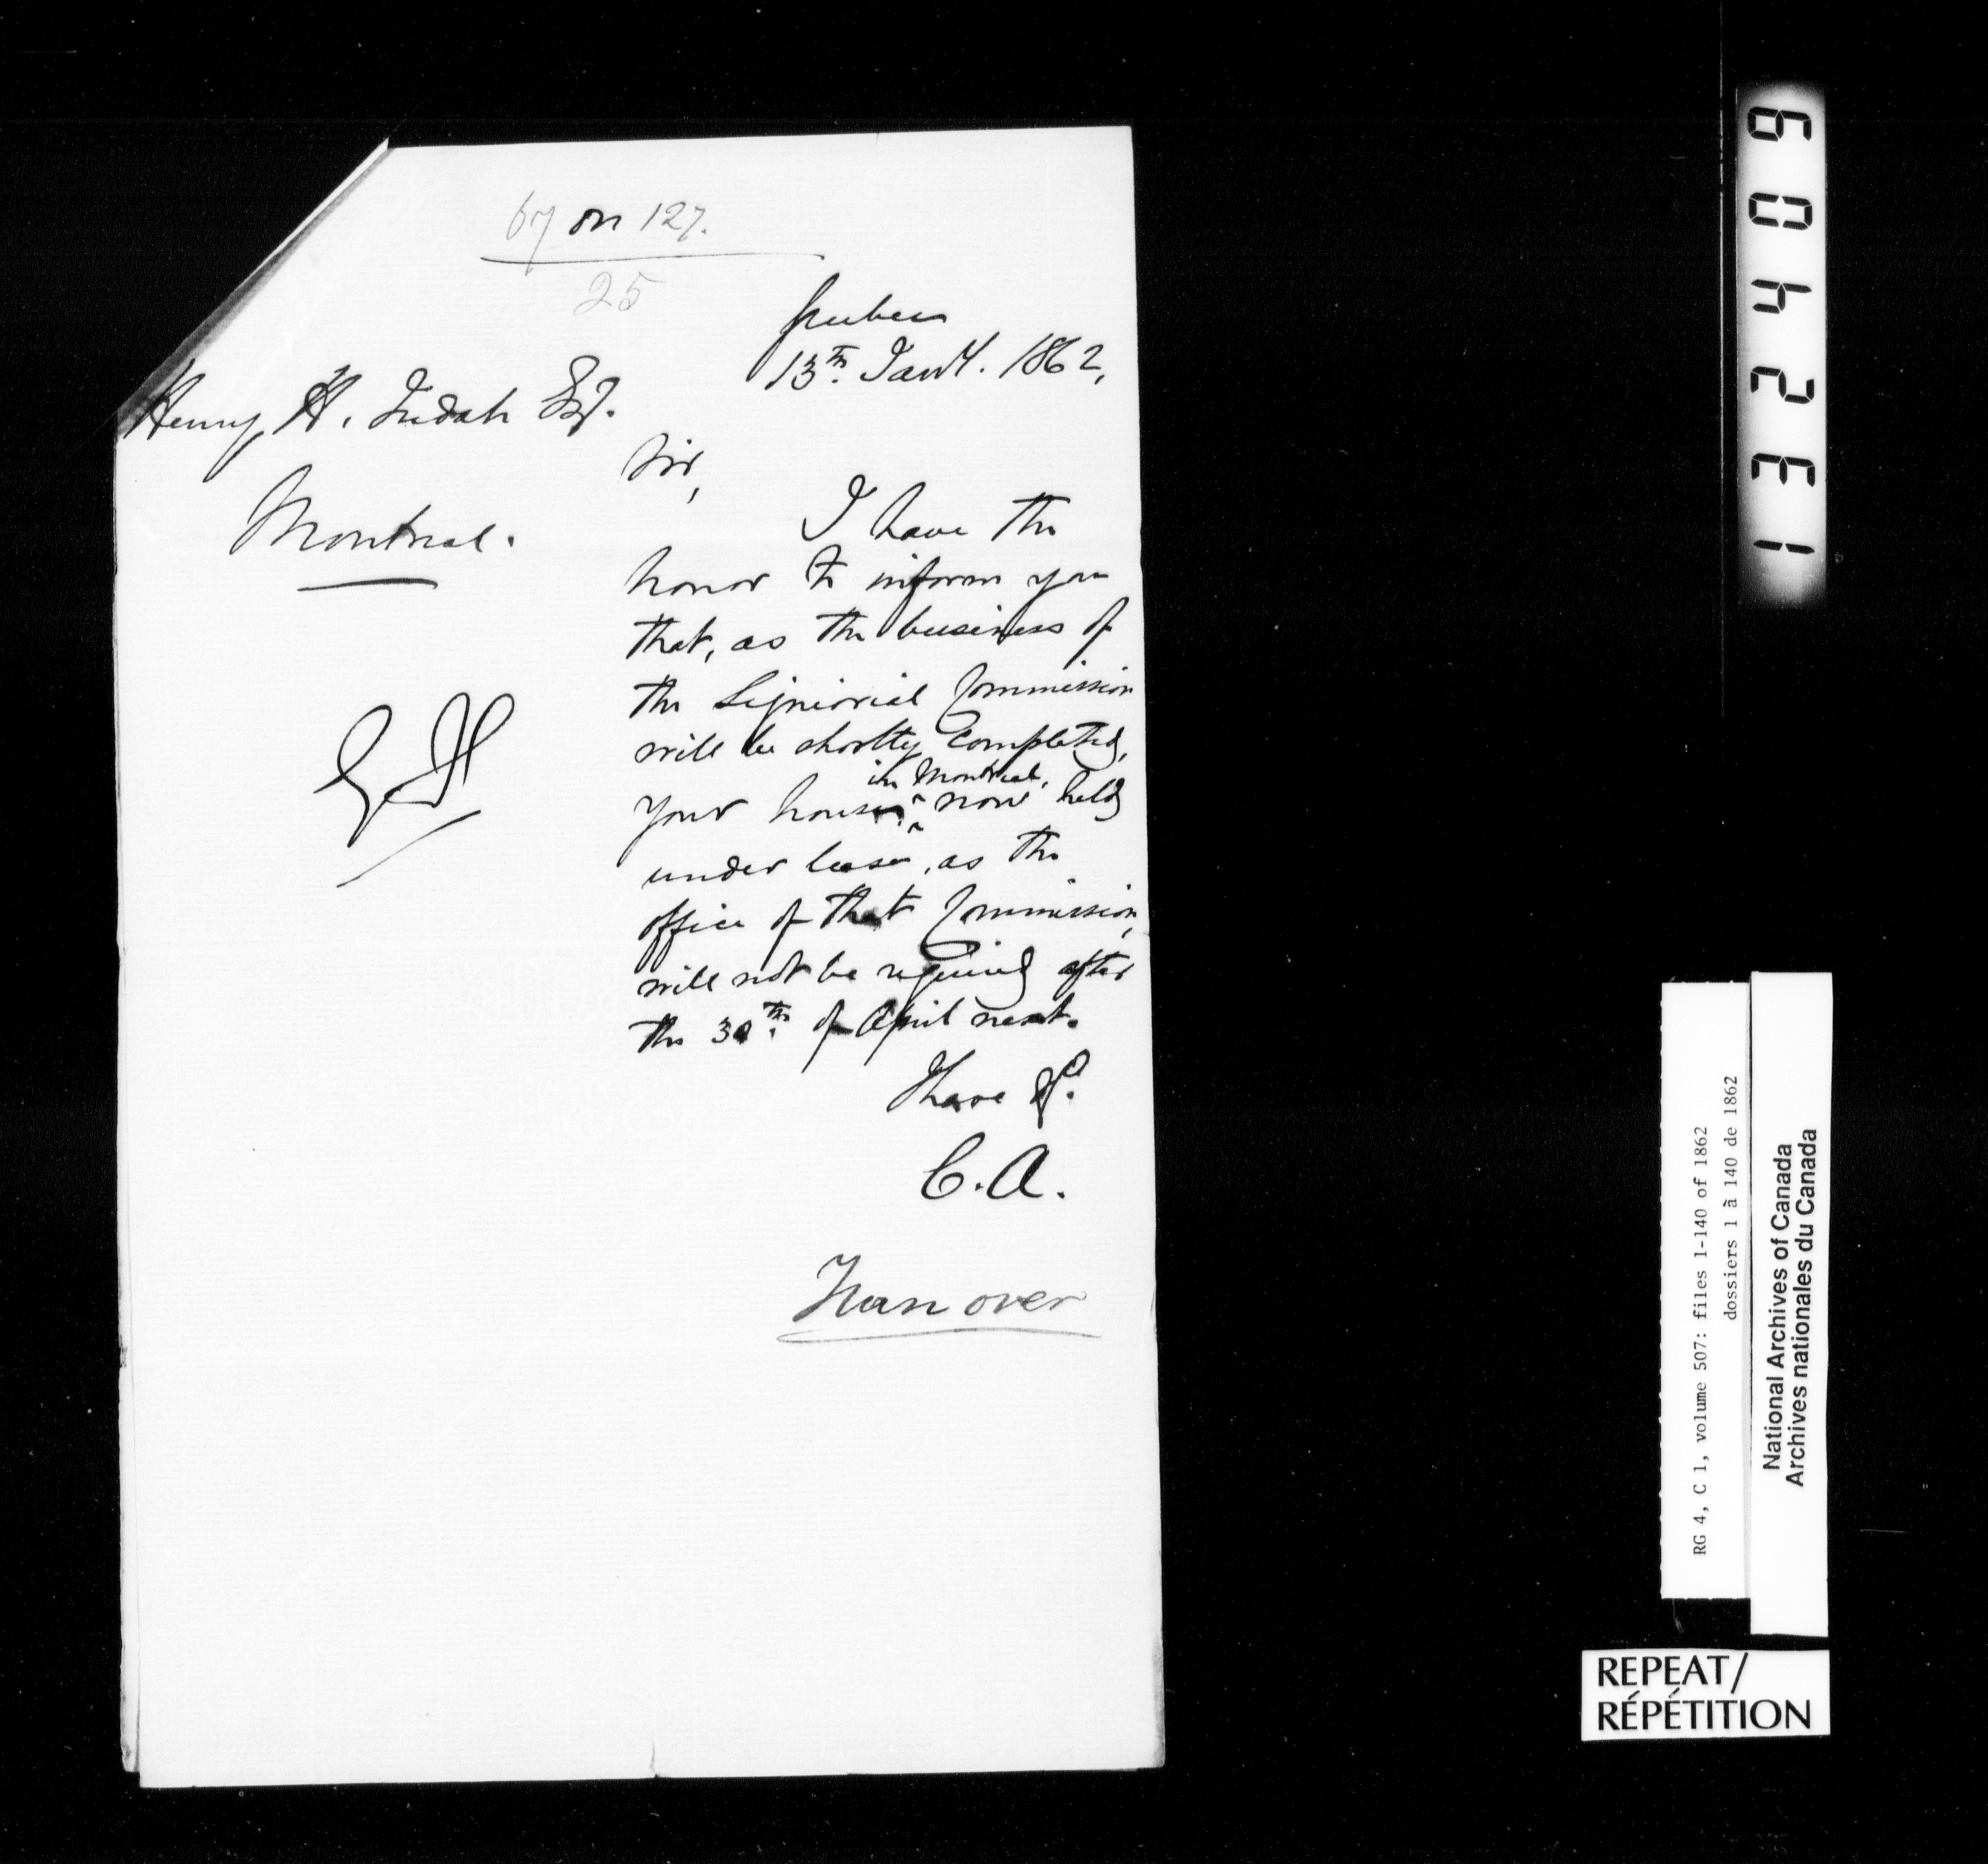 67 on 127.
25
Quebec
13th. Jany. 1862,
Henry H. Judah Esq.
Montreal.
Sir,
I have the
honor to inform you
that, as the business of
the Seigniorial Commission
will be shortly completed,
in Montreal,
your house now held
under lease, as the
office of that Commission,
will not be required after
the 30th. of April next.
I have &c.
C. A.
Turn over
RG 4, C 1, volume 507: files 1-140 of 1862
dossiers 1 à 140 de 1862
National Archives of Canada
Archives nationales du Canada
REPEAT/
RÉPÉTITION
132409